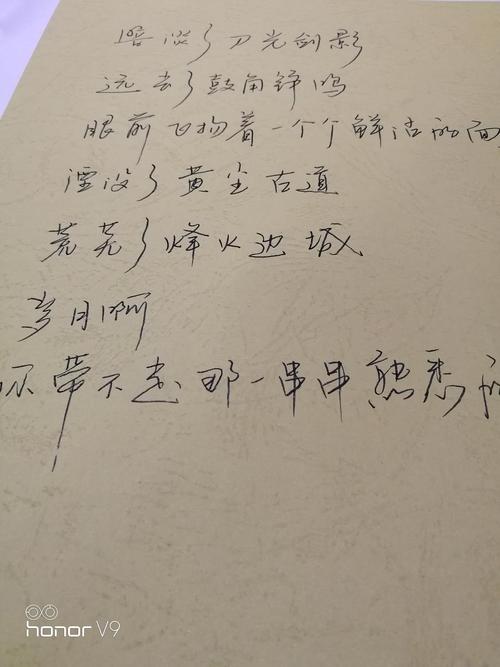 暗淡了刀光剑影
远去了鼓角铮鸣
眼前飞扬着一个个鲜活的面
湮没了黄尘古道
荒芜了烽火边城
岁月啊
你带不走那一串串熟悉的
honor V9